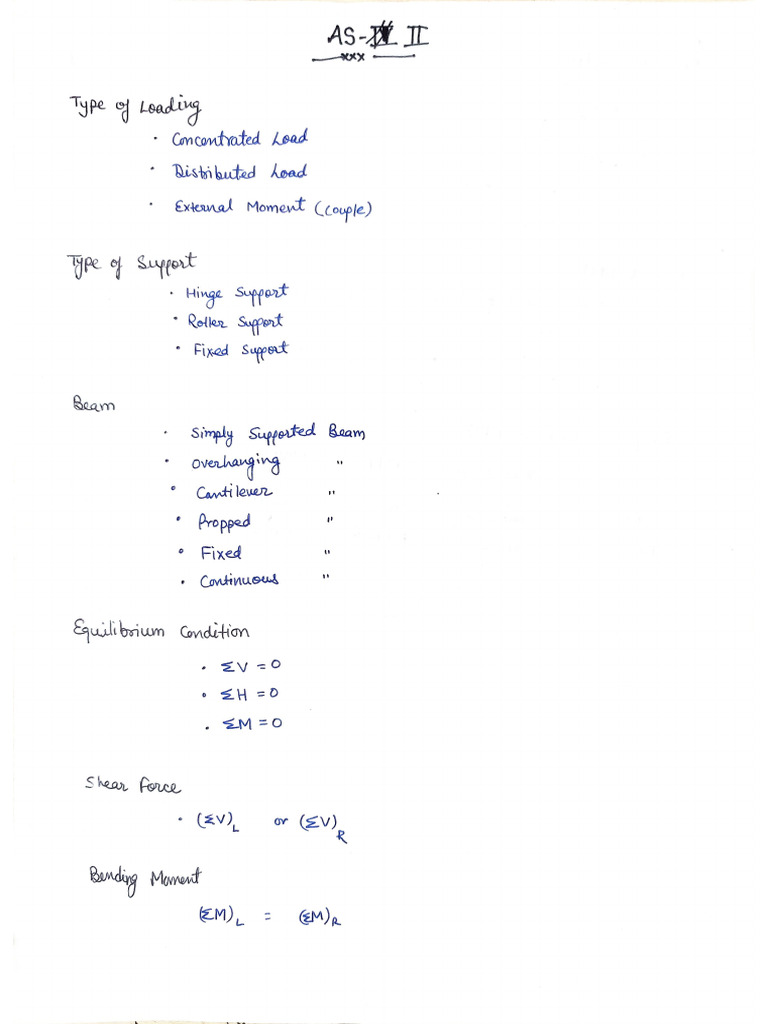 AS-II
xxx
Type of Loading
· Concentrated Load
· Distributed Load
· External Moment (Couple)
Type of Support
· Hinge Support
· Roller Support
· Fixed Support
Beam
· Simply Supported Beam
· Overhanging "
· Cantilever "
· Propped "
· Fixed "
· Continuous "
Equilibrium Condition
· ΣV = 0
· ΣH = 0
· ΣM = 0
Shear Force
· (ΣV)L or (ΣV)R
Bending Moment
(ΣM)L = (ΣM)R